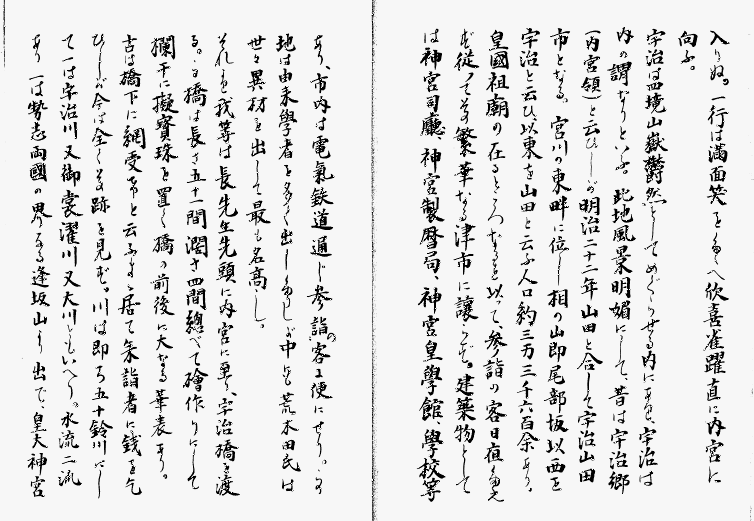 入りぬ。一行は満面笑をたゝへ欣喜雀躍直に内宮に
向ふ。
宇治は四境山嶽欝然としてめぐらせる内にあり、宇治は
内の謂なりといふ。此地風景明媚にして、昔は宇治郷
(内宮領)と云ひしが明治二十二年山田と合して宇治山田
市となる。宮川の東畔に位し相の山即尾部坂以西を
宇治と云ひ、以東を山田と云ふ人口約三万三千六百余あり。
皇國祖廟の在るところなるを以って、参詣の客日夜たえ
ず従ってその繁華なる津市に譲らず。建築物として
は神宮司廳、神宮製暦局、神宮皇學館、學校等
あり、市内は電氣鉄道通じ参詣の客に便にせり。
地は由来學者を多く出したりしが中にも荒木田氏は
世々異材を出して最も名高し。
それより我等は長先生先頭に内宮に至り、宇治橋を渡
る。橋は長さ五十一間濶さ四間總べて檜作りにして
欄干に擬寳珠を置く橋の前後に大なる華表あり。
古は橋下に網受等と云ふもの居て来詣者に銭を乞
ひしが今は全くその跡を見ず。川は即ち五十鈴川にし
て一は宇治川又御裳濯川又大川ともいへり。水流二流
あり一は勢志両國の界なる逢坂山より出で、皇大神宮